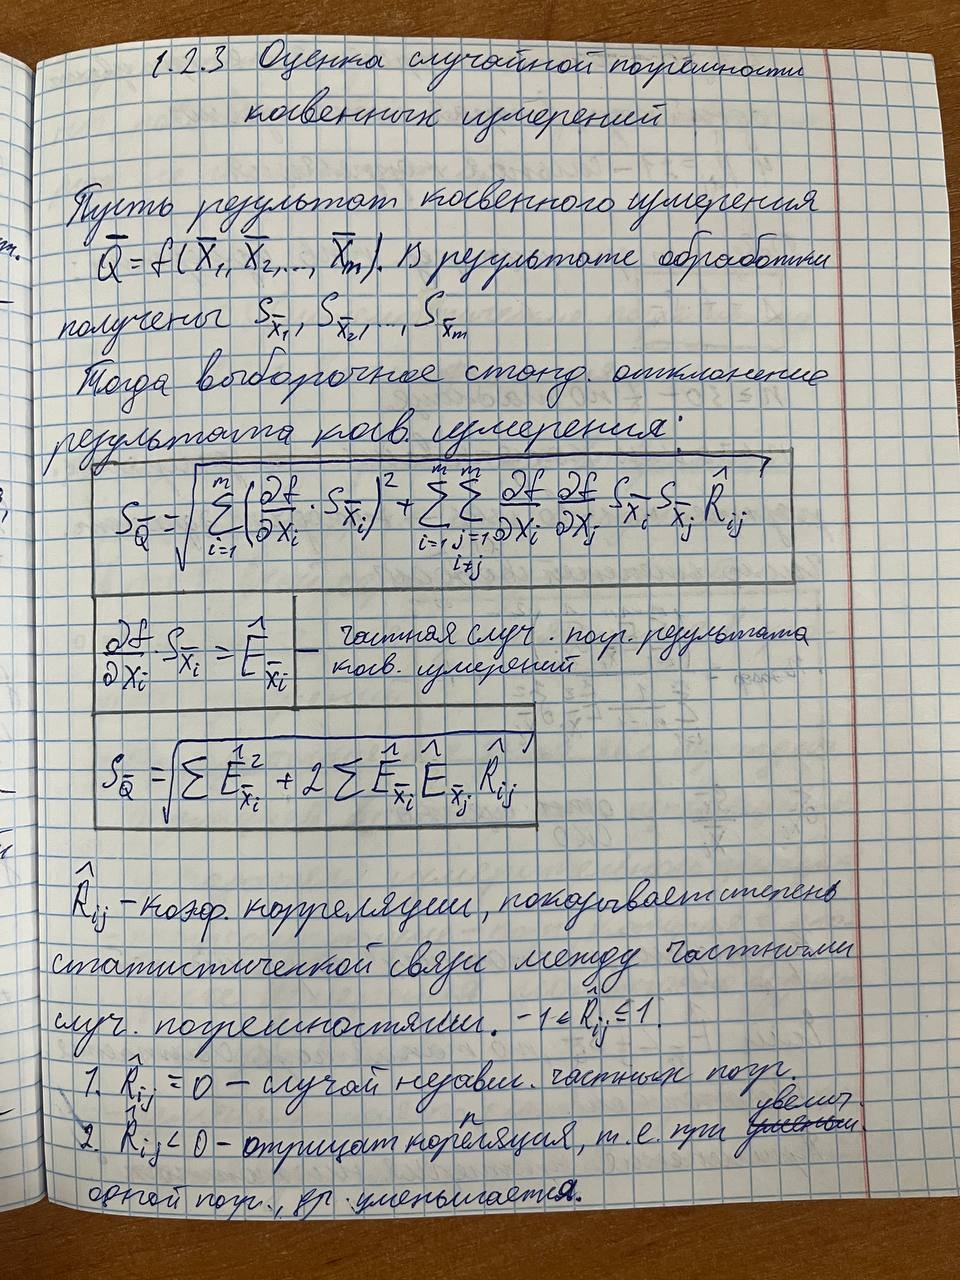 1.2.3 Оценка случайной погрешности
косвенных измерений
Пусть результат косвенного измерения
Q̅ = f(X̅₁, X̅₂, ..., X̅ₘ). В результате обработки
получены S_X̅₁, S_X̅₂, ..., S_X̅ₘ
Тогда выборочное станд. отклонение
результата косв. измерения:
S_Q̅ = √(∑_{i=1}^{m} (∂f/∂X_i · S_X̅_i)² + ∑_{i=1}^{m} ∑_{j=1, i≠j}^{m} ∂f/∂X_i ∂f/∂X_j S_X̅_i S_X̅_j R̂_ij)
∂f/∂X_i · S_X̅_i = Ê_X̅_i — частная случ. погр. результата
косв. измерений
S_Q̅ = √(∑ Ê²_X̅_i + 2 ∑ Ê_X̅_i Ê_X̅_j R̂_ij)
R̂_ij – коэф. корреляции, показывает степень
статистической связи между частными
случ. погрешностями. -1 ≤ R̂_ij ≤ 1.
1. R̂_ij = 0 – случай независ. частных погр.
2. R̂_ij < 0 – отрицат корреляция, т.е. при увелич.
одной погр., др. уменьшается.